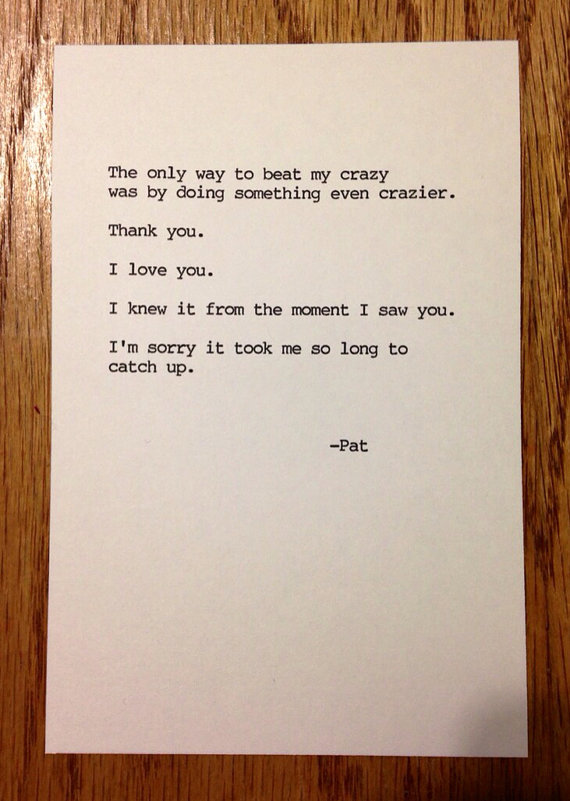 The only way to beat my crazy
was by doing something even crazier.
Thank you.
I love you.
I knew it from the moment I saw you.
I'm sorry it took me so long to
catch up.
—Pat